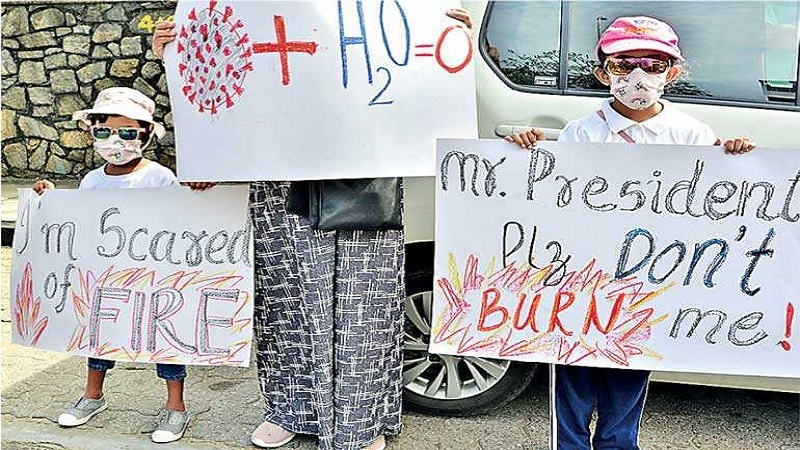 + H2O=0
I'm Scared
of FIRE
Mr. President
Plz Don't
BURN me!